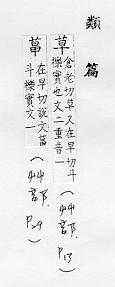 類篇
草
倉老切草又在早切斗
櫟實也文二重音一
(艸部, P.13)
在早切說文
斗櫟實文一
(艸部, P.29)